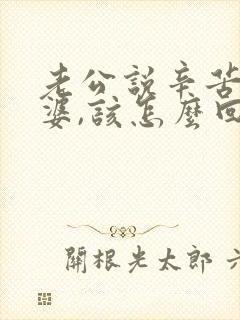 老公說辛苦
婆,該怎麼回
開根光太郎 六